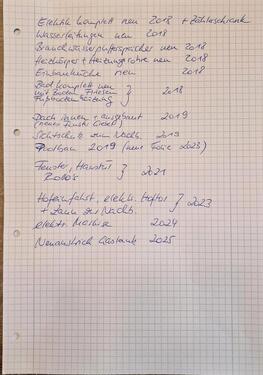 Elektrik komplett neu 2018 + Zählerschrank
Wasserleitungen neu 2018
Brauchwasserpufferspeicher neu 2018
Heizkörper + Heizungsrohre neu 2018
Einbauküche neu 2018
Bad komplett neu
mit Boden Fliesen } 2018
Fußbodenheizung
Dach innen + ausgebaut 2019
(neues Fenster Giebel)
Sichtschutz zum Nachb. 2019
Poolbau 2019 (neue Folie 2023)
Fenster, Haustür } 2021
Rollo's
Hofeinfahrt, elektr. Hoftor } 2023
+ Zaun zu Nachb.
elektr. Markise 2024
Neuanstrich Gastank 2025